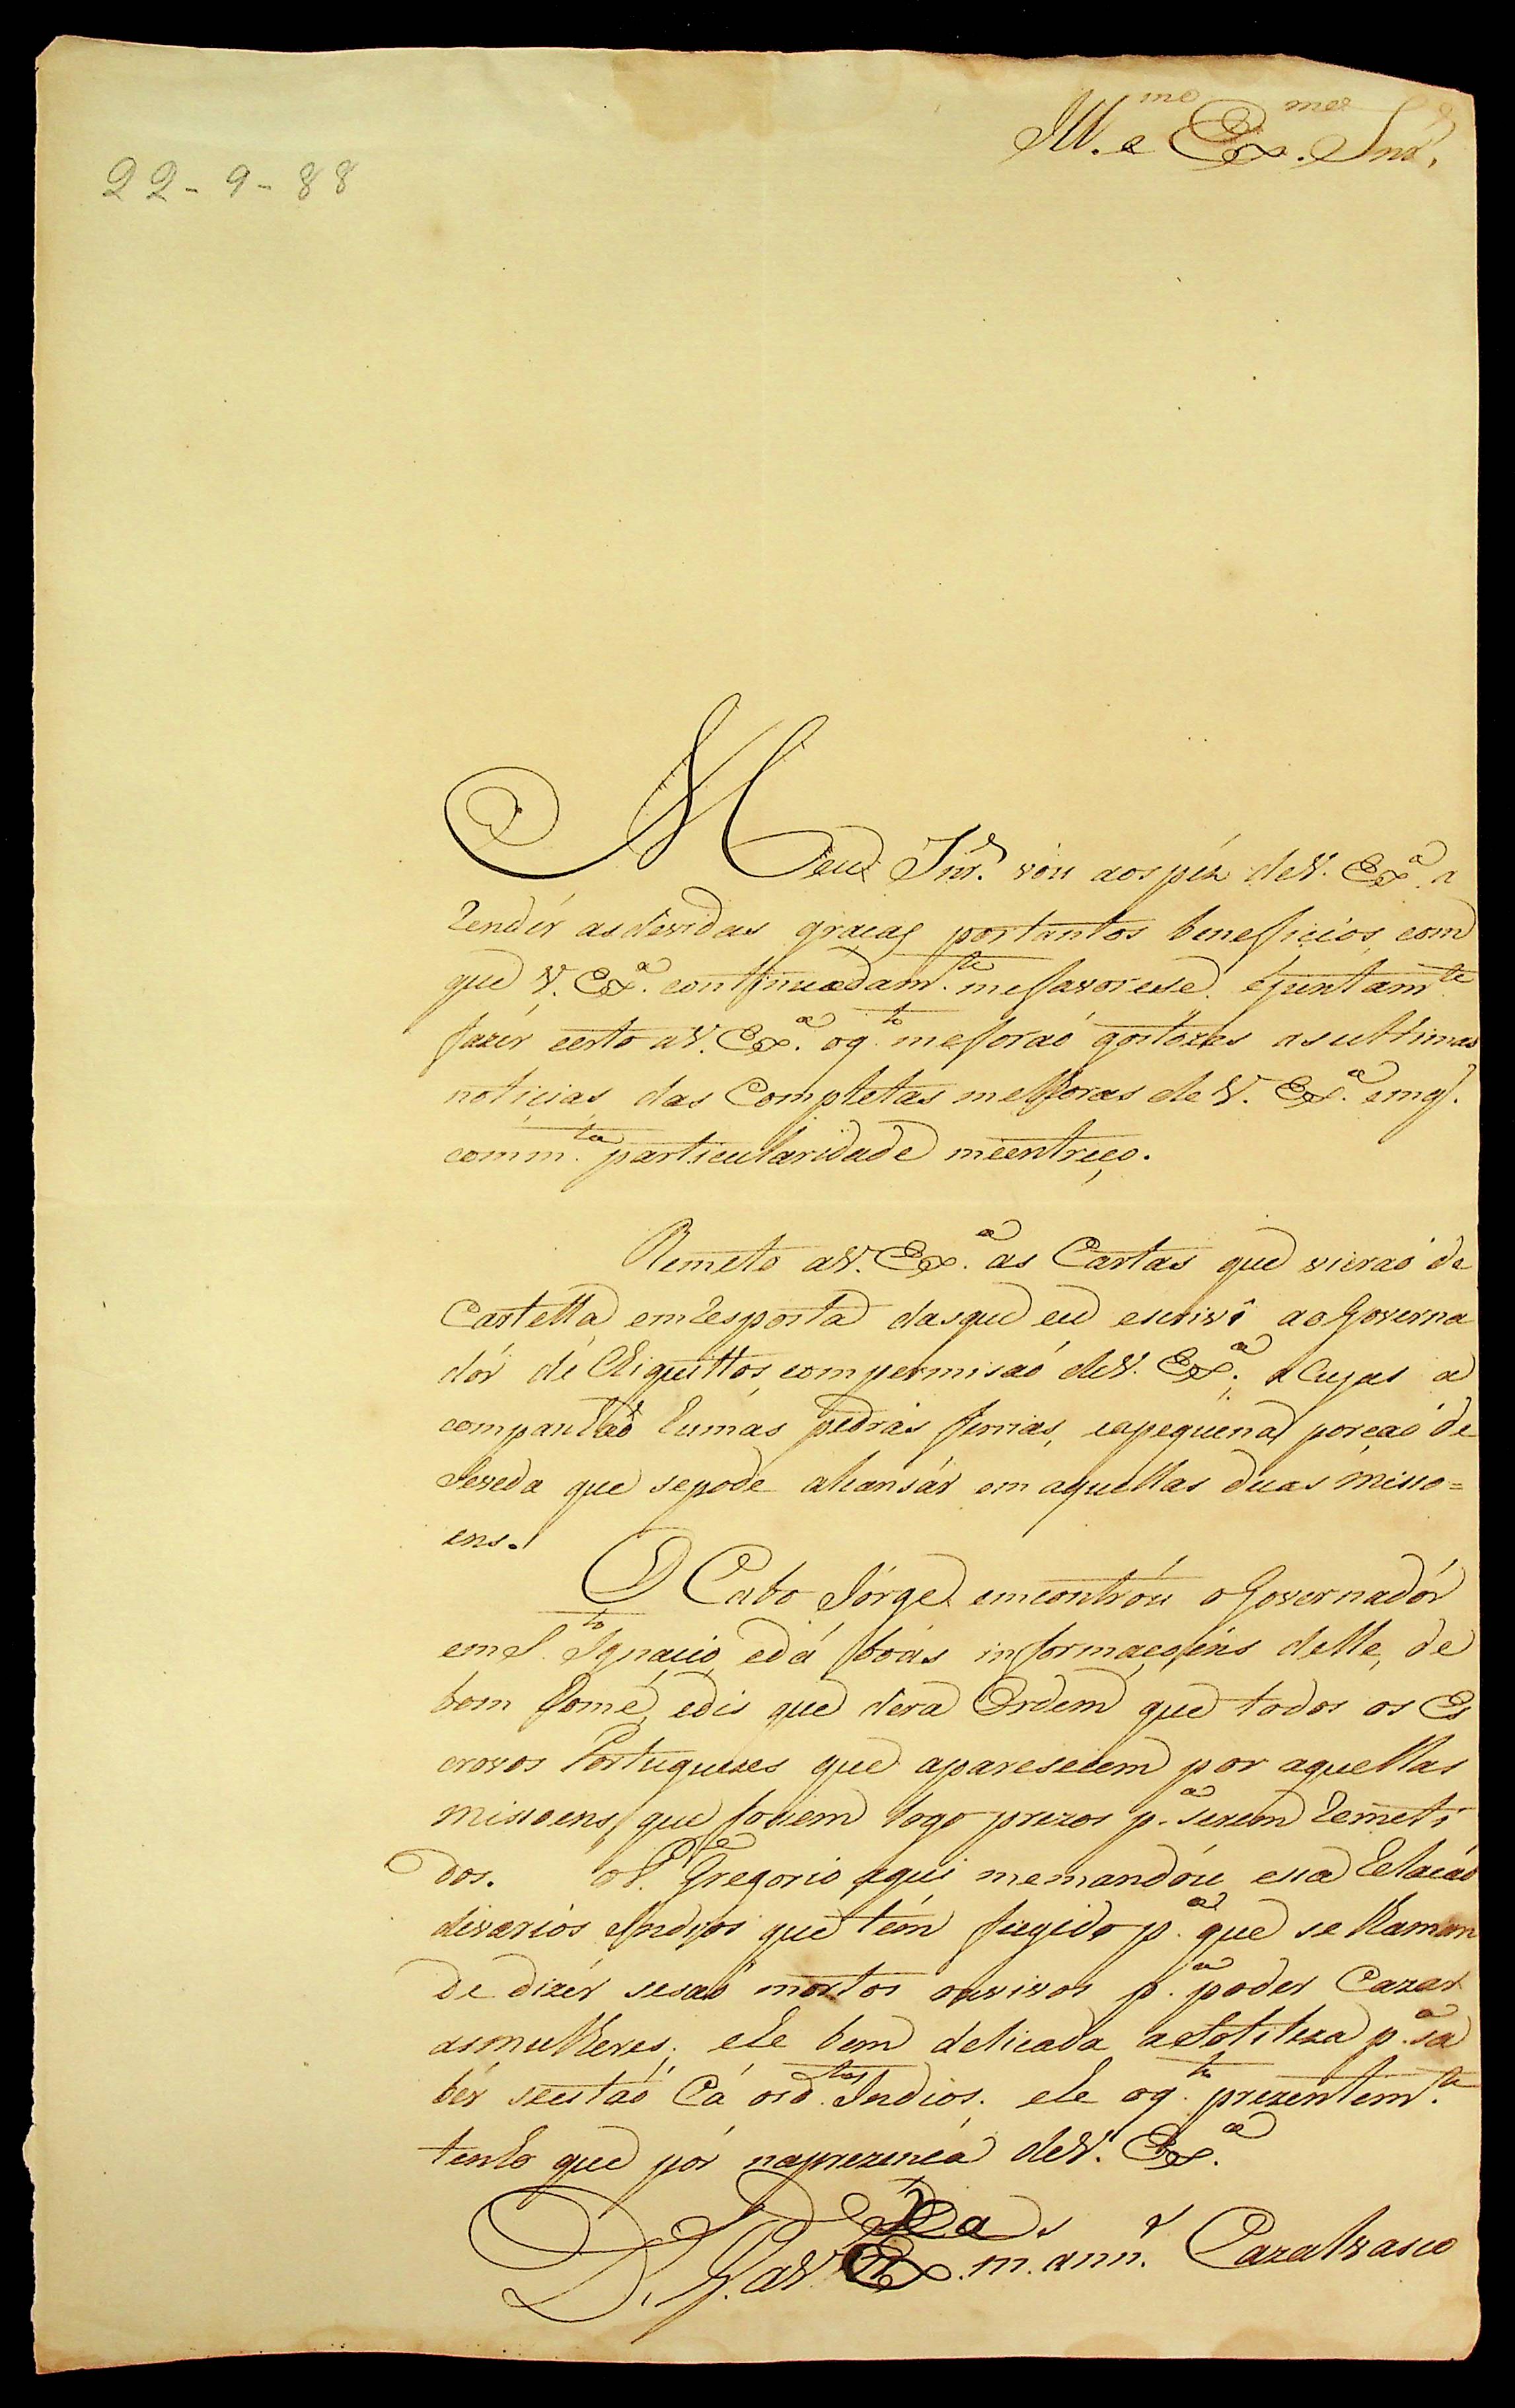 Ill.mo e Ex.mo Snr.
22-9-88
Meu Snr. vou aos péz de V. Ex.a a
Rendêr as devidas graças por tantos beneficios, com
que V. Ex.a continuadam.te me favorese. e juntam.te
fazêr certo a V. Ex.a o q.to me foraõ gostozas as ulthimas
noticias das Completas melhoras de V. Ex.a em q.
com m.ta particularidade me entreço.
Remeto a V. Ex.a as Cartas que vieraõ de
Castella em Resposta das que eu escrivî ao Governa
dôr de Chiquittos, com permisaõ de V. Ex.a; a Cujas a
companhaõ humas pedras, e a pequena porçaõ de
Seveda que se pode alcansár em aquellas duas Misso=
ens.
O Cabo Jórge encontróu o Governadór
em S.to Ignacio e dá boas informaçoins delle, de
bom home, e dis que dera Ordem que todos os Es
cravos Portuguezes que aparesecem por aquellas
missoens, que fosem logo prezos p.a serem Remeti
dos. o P.e Gregorio aqui me mandóu essa Relacaõ
de varios Indios que tém fugido p.a que se llaman
de dizêr se saõ mortos ou vivos p.a poder Cazar
as mulheres; e he bem delicada a Sotileza p.a sa
bêr se estaõ Cá os d.tos Indios. e he o q.to prezentem.te
tenho que pôr na prezença de V. Ex.a
D. G. a V. Ex.a m. ann.s Cazalvasco